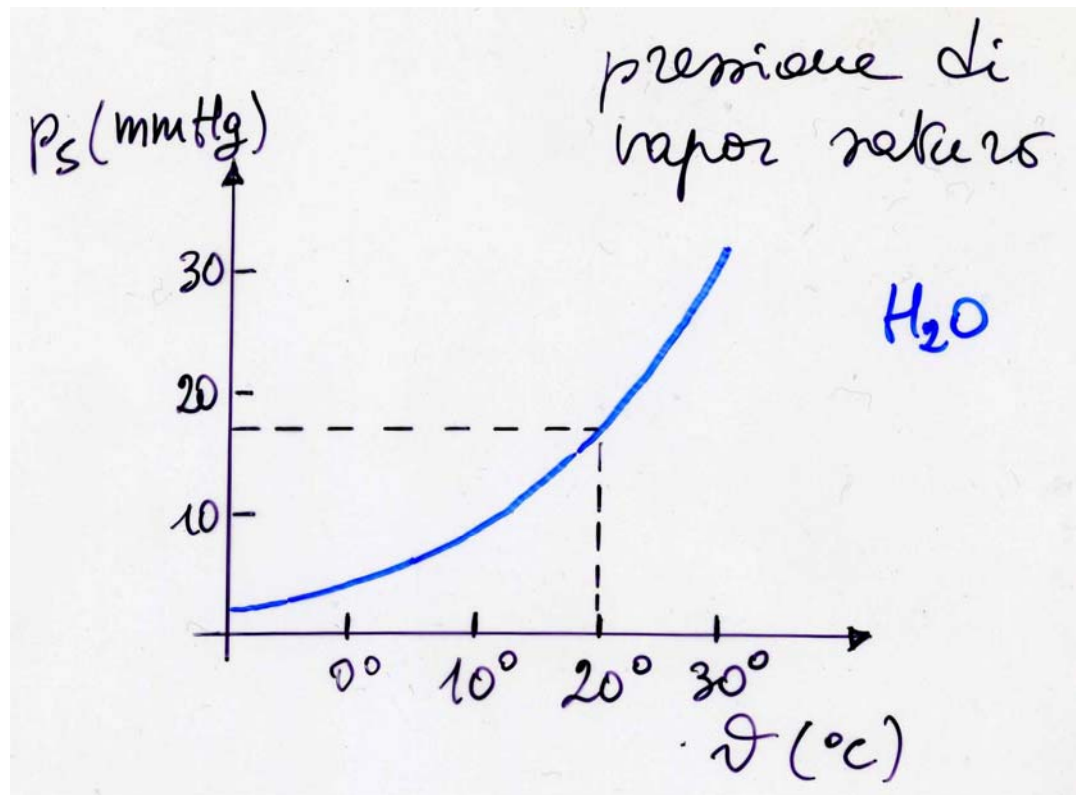 pressione di
vapor saturo
ps (mmHg)
30
20
10
H2O
0° 10° 20° 30°
ϑ (°C)